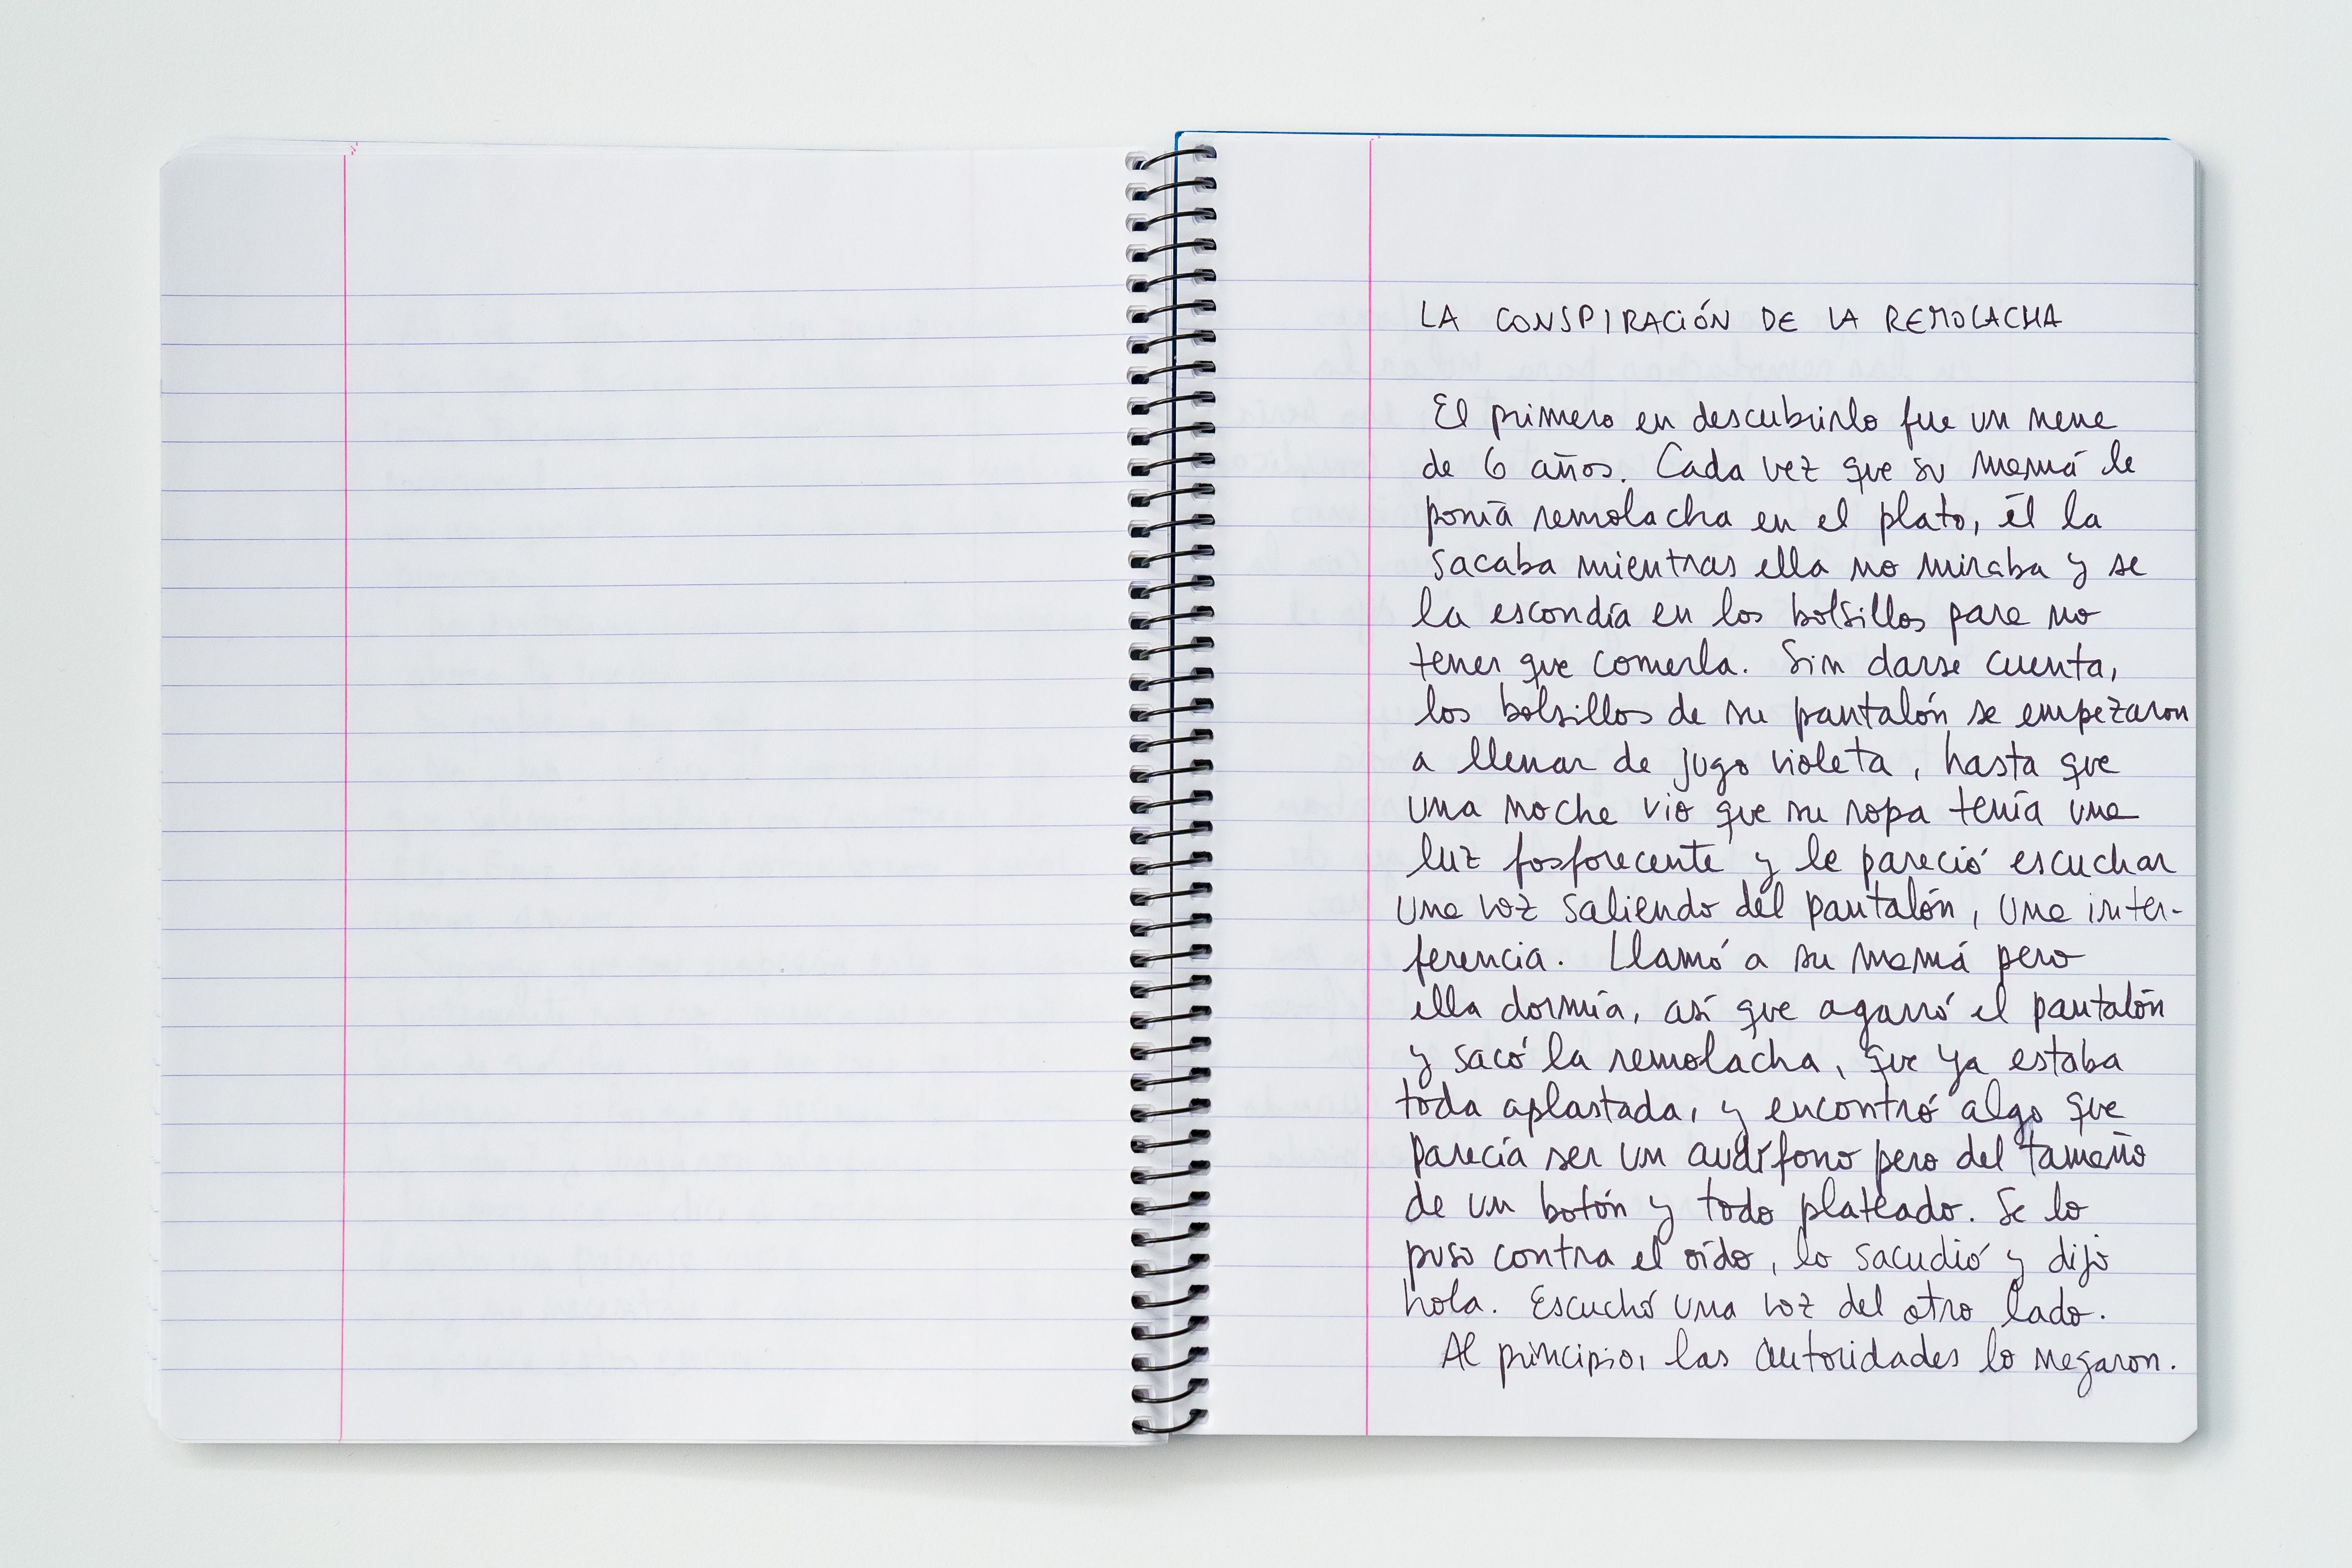 LA CONSPIRACIÓN DE LA REMOLACHA
El primero en descubrirlo fue un nene
de 6 años. Cada vez que su mamá le
ponía remolacha en el plato, él la
sacaba mientras ella no miraba y se
la escondía en los bolsillos para no
tener que comerla. Sin darse cuenta,
los bolsillos de su pantalón se empezaron
a llenar de jugo violeta, hasta que
una noche vio que su ropa tenía una
luz fosforecente y le pareció escuchar
una voz saliendo del pantalón, una inter-
ferencia. Llamó a su mamá pero
ella dormía, así que agarró el pantalón
y sacó la remolacha, que ya estaba
toda aplastada, y encontró algo que
parecía ser un audífono pero del tamaño
de un botón y todo plateado. Se lo
puso contra el oído, lo sacudió y dijo
hola. Escuchó una voz del otro lado.
Al principio, las autoridades lo negaron.